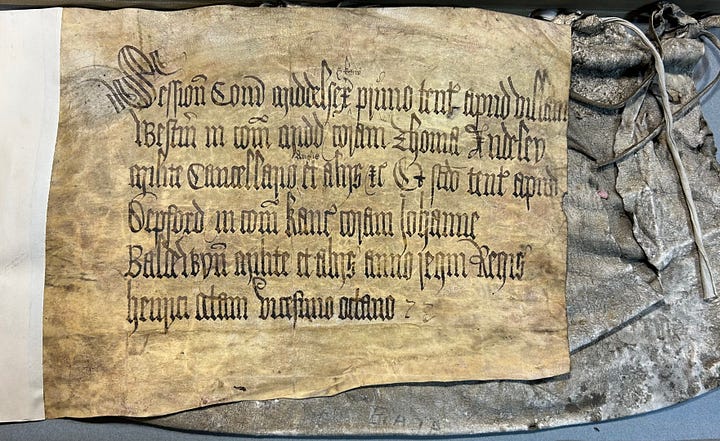 De
Session Com Middelsex primo tent apud villam
Westm in com Midd coram Thoma Audeley
milite Cancellario Anglie et alijs &c Et scdo tent apud
Depford in com Kanc coram Johanne
Baldewyn milite et alijs anno regni Regis
henrici octavi vicesimo octavo